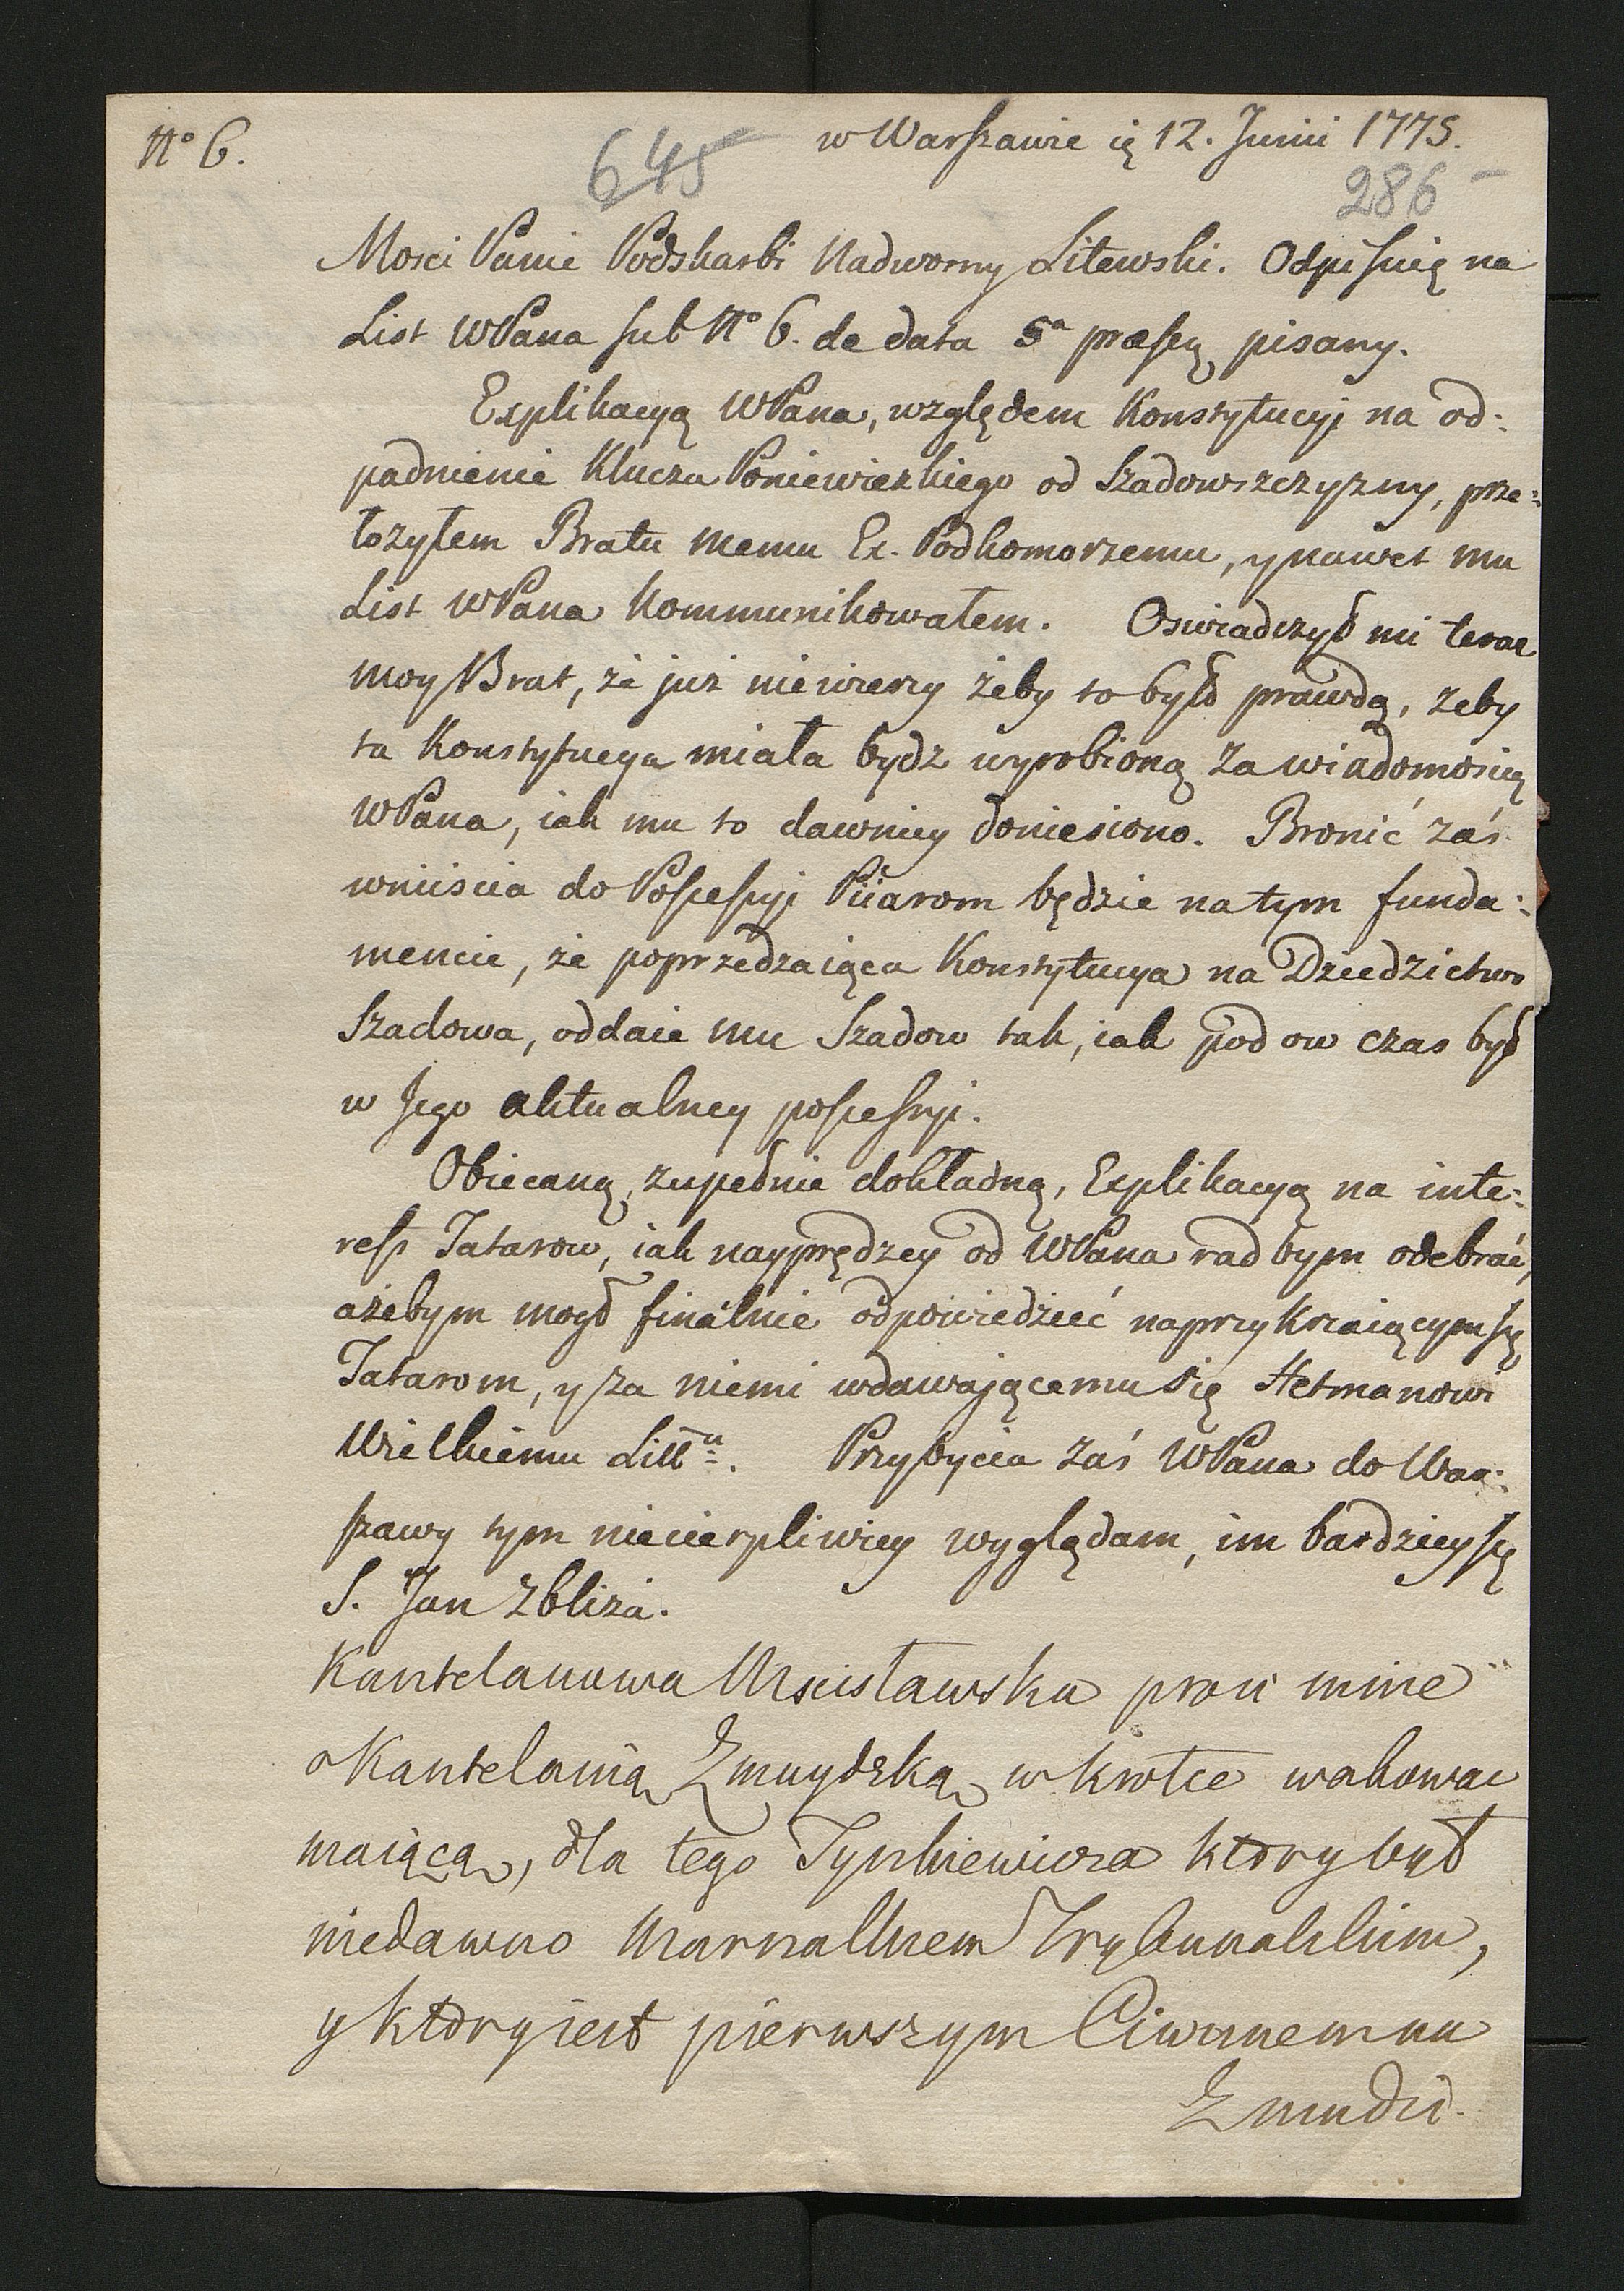 N° 6.
w Warszawie ię 12. Junii 1775.
645
286
Mosci Panie Podskarbi Nadworny Litewski. Odpisuię na
List WPana sub N° 6. de data 5ª præseą pisany.
Explikacyą WPana, względem Konstytucyi na od:
padnienie Klucza Poniewiezkiego od Szadowszczyzny, prze:
łozyłem Bratu memu Ex. Podkomorzemu, y nawet mu
List WPana kommunikowałem. Oswiadczył mi teraz
moy Brat, że już nie wierzy żeby to było prawdą, żeby
ta Konstytucya miała bydz wyrobioną za wiadomością
WPana, iak mu to dawniey doniesiono. Bronić zaś
wniiscia do Possessyi Piiarom będzie na tym funda:
mencie, że poprzedzaiąca Konstytucya na Dziedzictwo
Szadowa, oddaie mu Szadow tak, iak pod ow czas był
w Jego aktualney possessyi.
Obiecaną, zupełnie dokładną, Explikacyą na inte:
ress Tatarow, iak nayprędzey od WPana rad bym odebrać,
ażebym mogł finalnie odpowiedzieć naprzykrzaiącym się
Tatarom, y za niemi wdawającemu się Hetmanowi
Wielkiemu Litt:u. Przybycia zaś WPana do War:
szawy tym niecierpliwiey wyglądam, im bardziey się
S. Jan zbliża.
Kasztelanowa Mscisławska prosi mnie
o Kasztelanią Zmuydzką w krotce wakowac
maiącą, dla tego Tyszkiewicza ktory był
niedawno Marszałkiem Trybunalskim,
y ktory iest pierwszym Ciwunem na
Zmudzi.